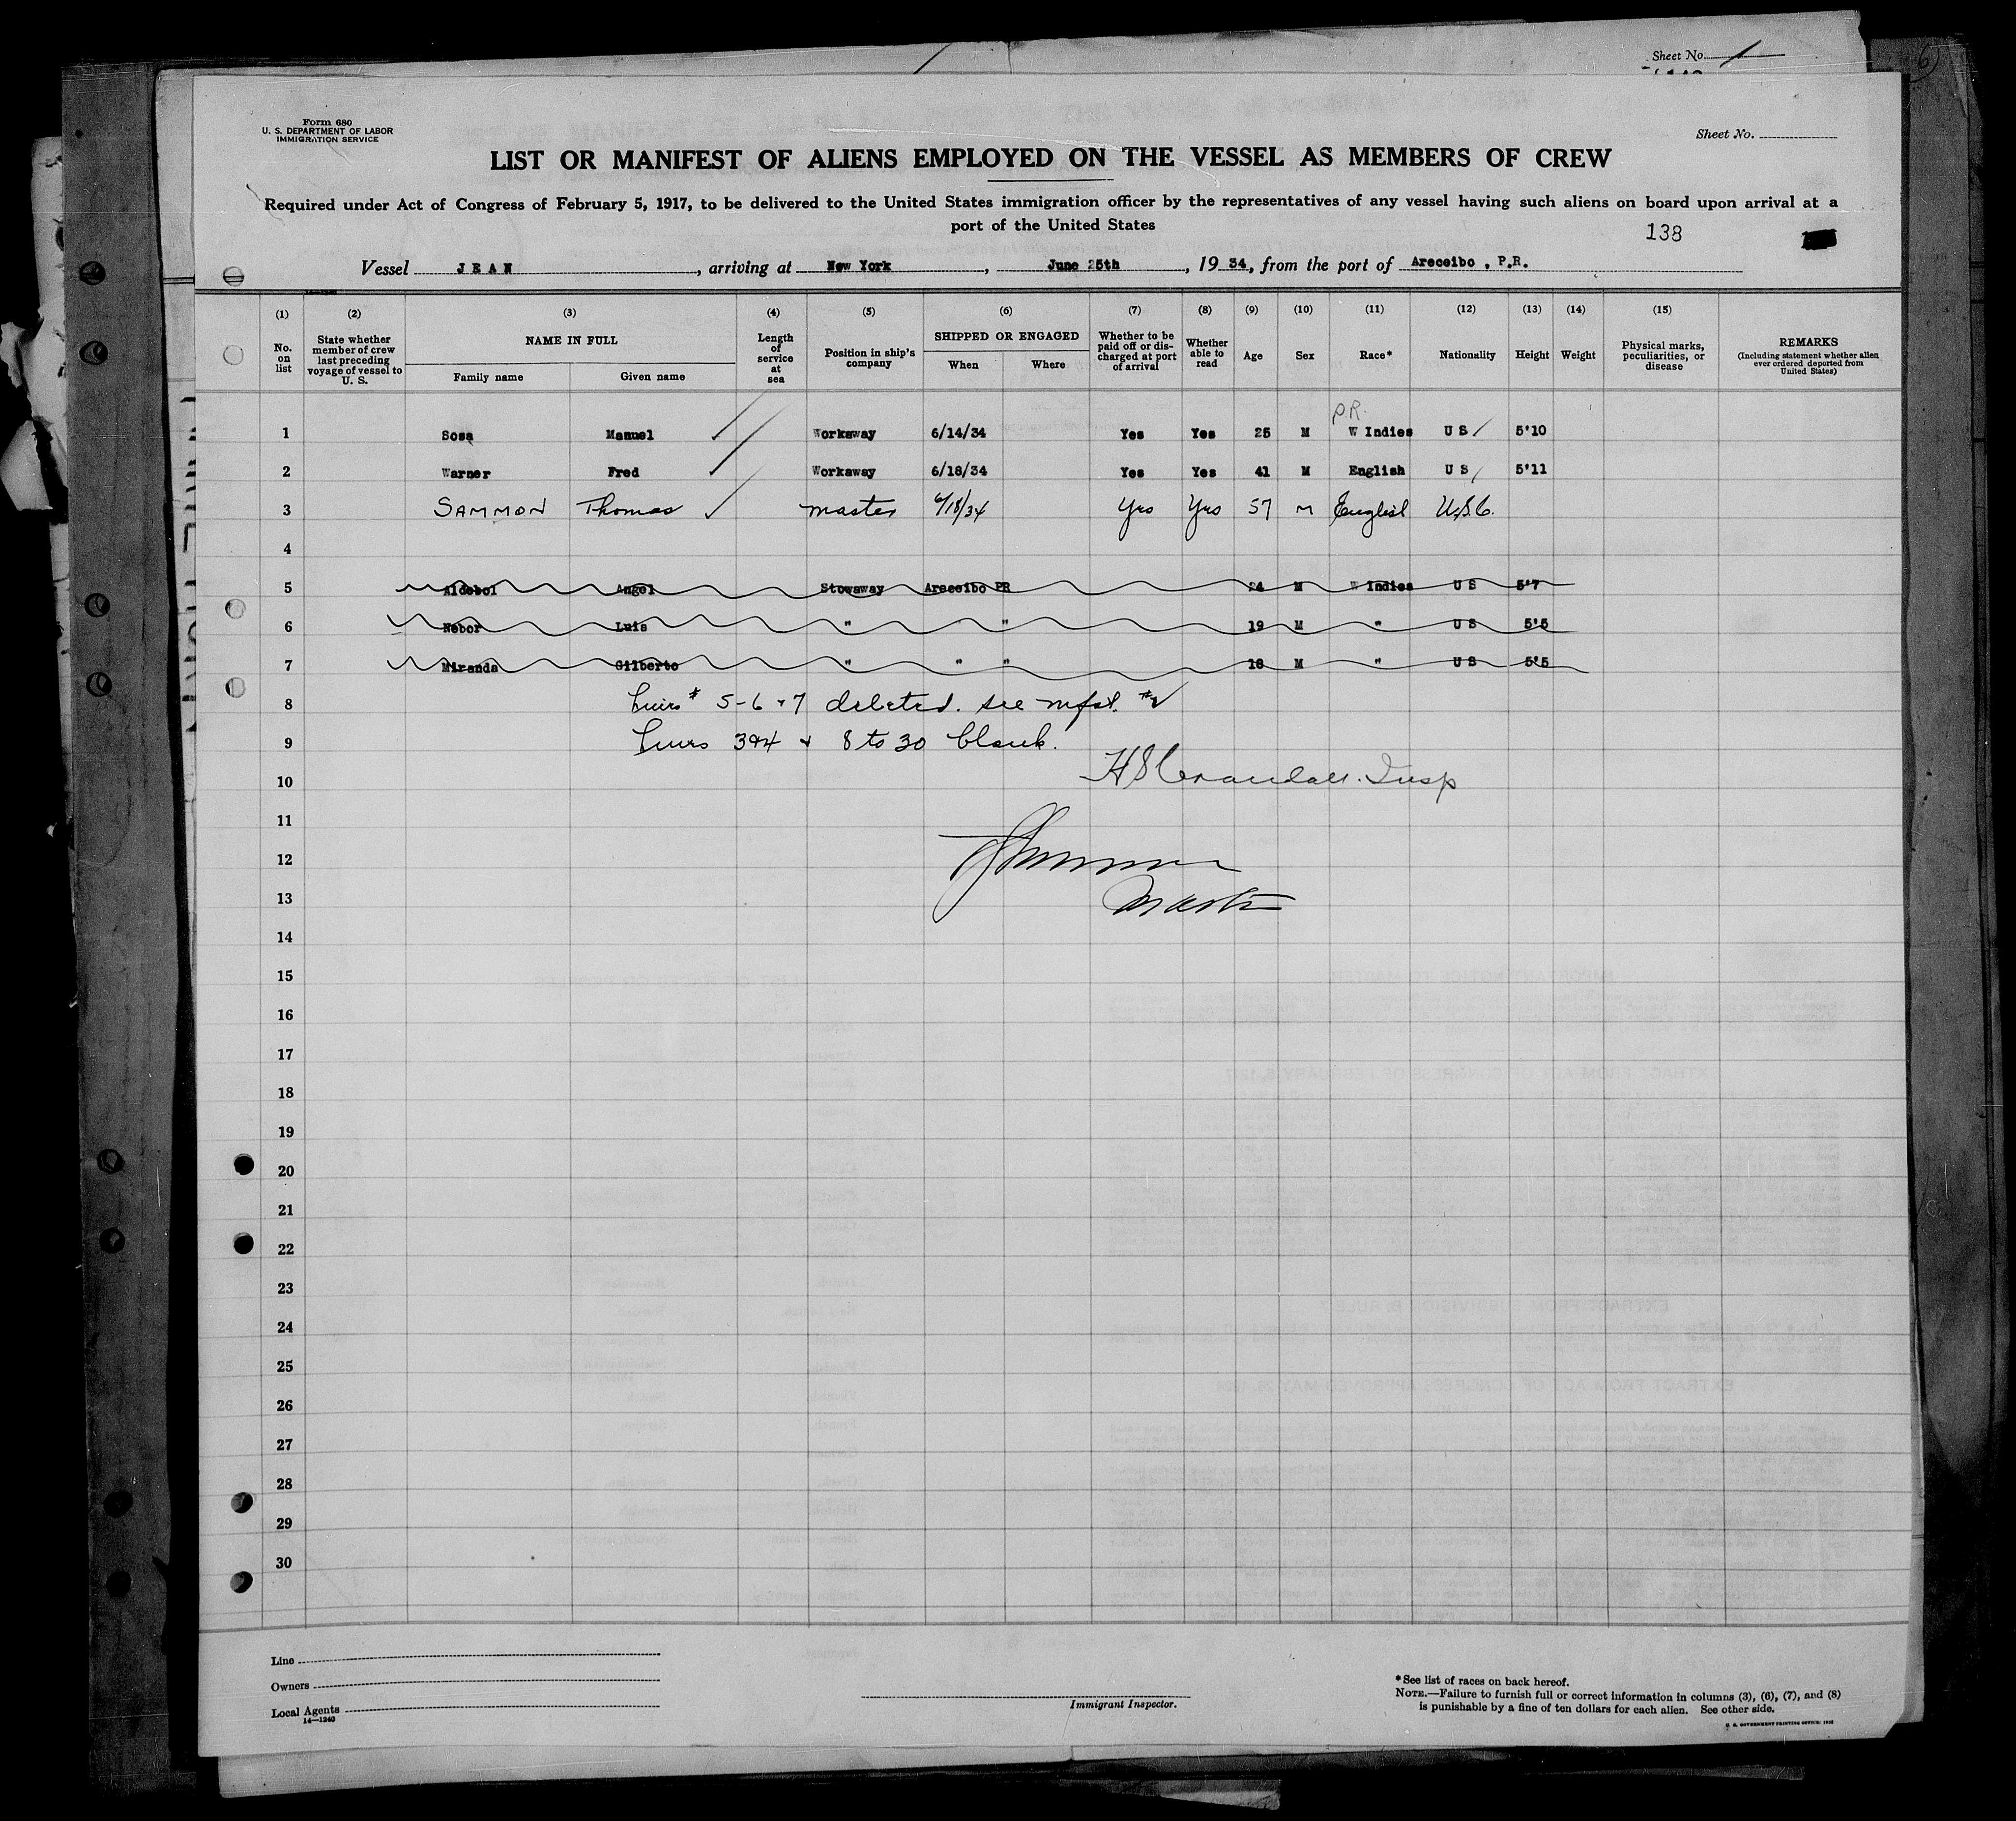 Sheet No. 1
Form 680
U. S. DEPARTMENT OF LABOR
IMMIGRATION SERVICE
Sheet No.
LIST OR MANIFEST OF ALIENS EMPLOYED ON THE VESSEL AS MEMBERS OF CREW
Required under Act of Congress of February 5, 1917, to be delivered to the United States immigration officer by the representatives of any vessel having such aliens on board upon arrival at a
port of the United States
138
Vessel JEAN, arriving at New York, June 25th, 19 34, from the port of Areceibo, P.R.
(1) (2) (3) (4) (5) (6) (7) (8) (9) (10) (11) (12) (13) (14) (15)
No. on list
State whether member of crew last preceding voyage of vessel to U. S.
NAME IN FULL
Family name Given name
Length of service at sea
Position in ship's company
SHIPPED OR ENGAGED
When Where
Whether to be paid off or discharged at port of arrival
Whether able to read
Age
Sex
Race*
Nationality
Height
Weight
Physical marks, peculiarities, or disease
REMARKS
(Including statement whether alien ever ordered deported from United States)
P.R.
1 Sosa Manuel Workaway 6/14/34 Yes Yes 25 M W Indies U S 5'10
2 Warner Fred Workaway 6/18/34 Yes Yes 41 M English U S 5'11
3 SAMMON Thomas master 6/18/34 Yes Yes 57 M English U.S.C.
4
5 Aldebol Angel Stowaway Areceibo PR 24 M W Indies U S 5'7
6 Nebor Luis " " " 19 M " U S 5'5
7 Miranda Gilberto " " " 18 M " U S 5'5
8 Lines # 5-6 + 7 deleted. see mfst. #2
9 Lines 3&4 + 8 to 30 blank.
10 H S Crandall. Insp
11
12
13 Master
14
15
16
17
18
19
20
21
22
23
24
25
26
27
28
29
30
Line
Owners
Local Agents
14—1240
Immigrant Inspector.
*See list of races on back hereof.
NOTE.—Failure to furnish full or correct information in columns (3), (6), (7), and (8)
is punishable by a fine of ten dollars for each alien. See other side.